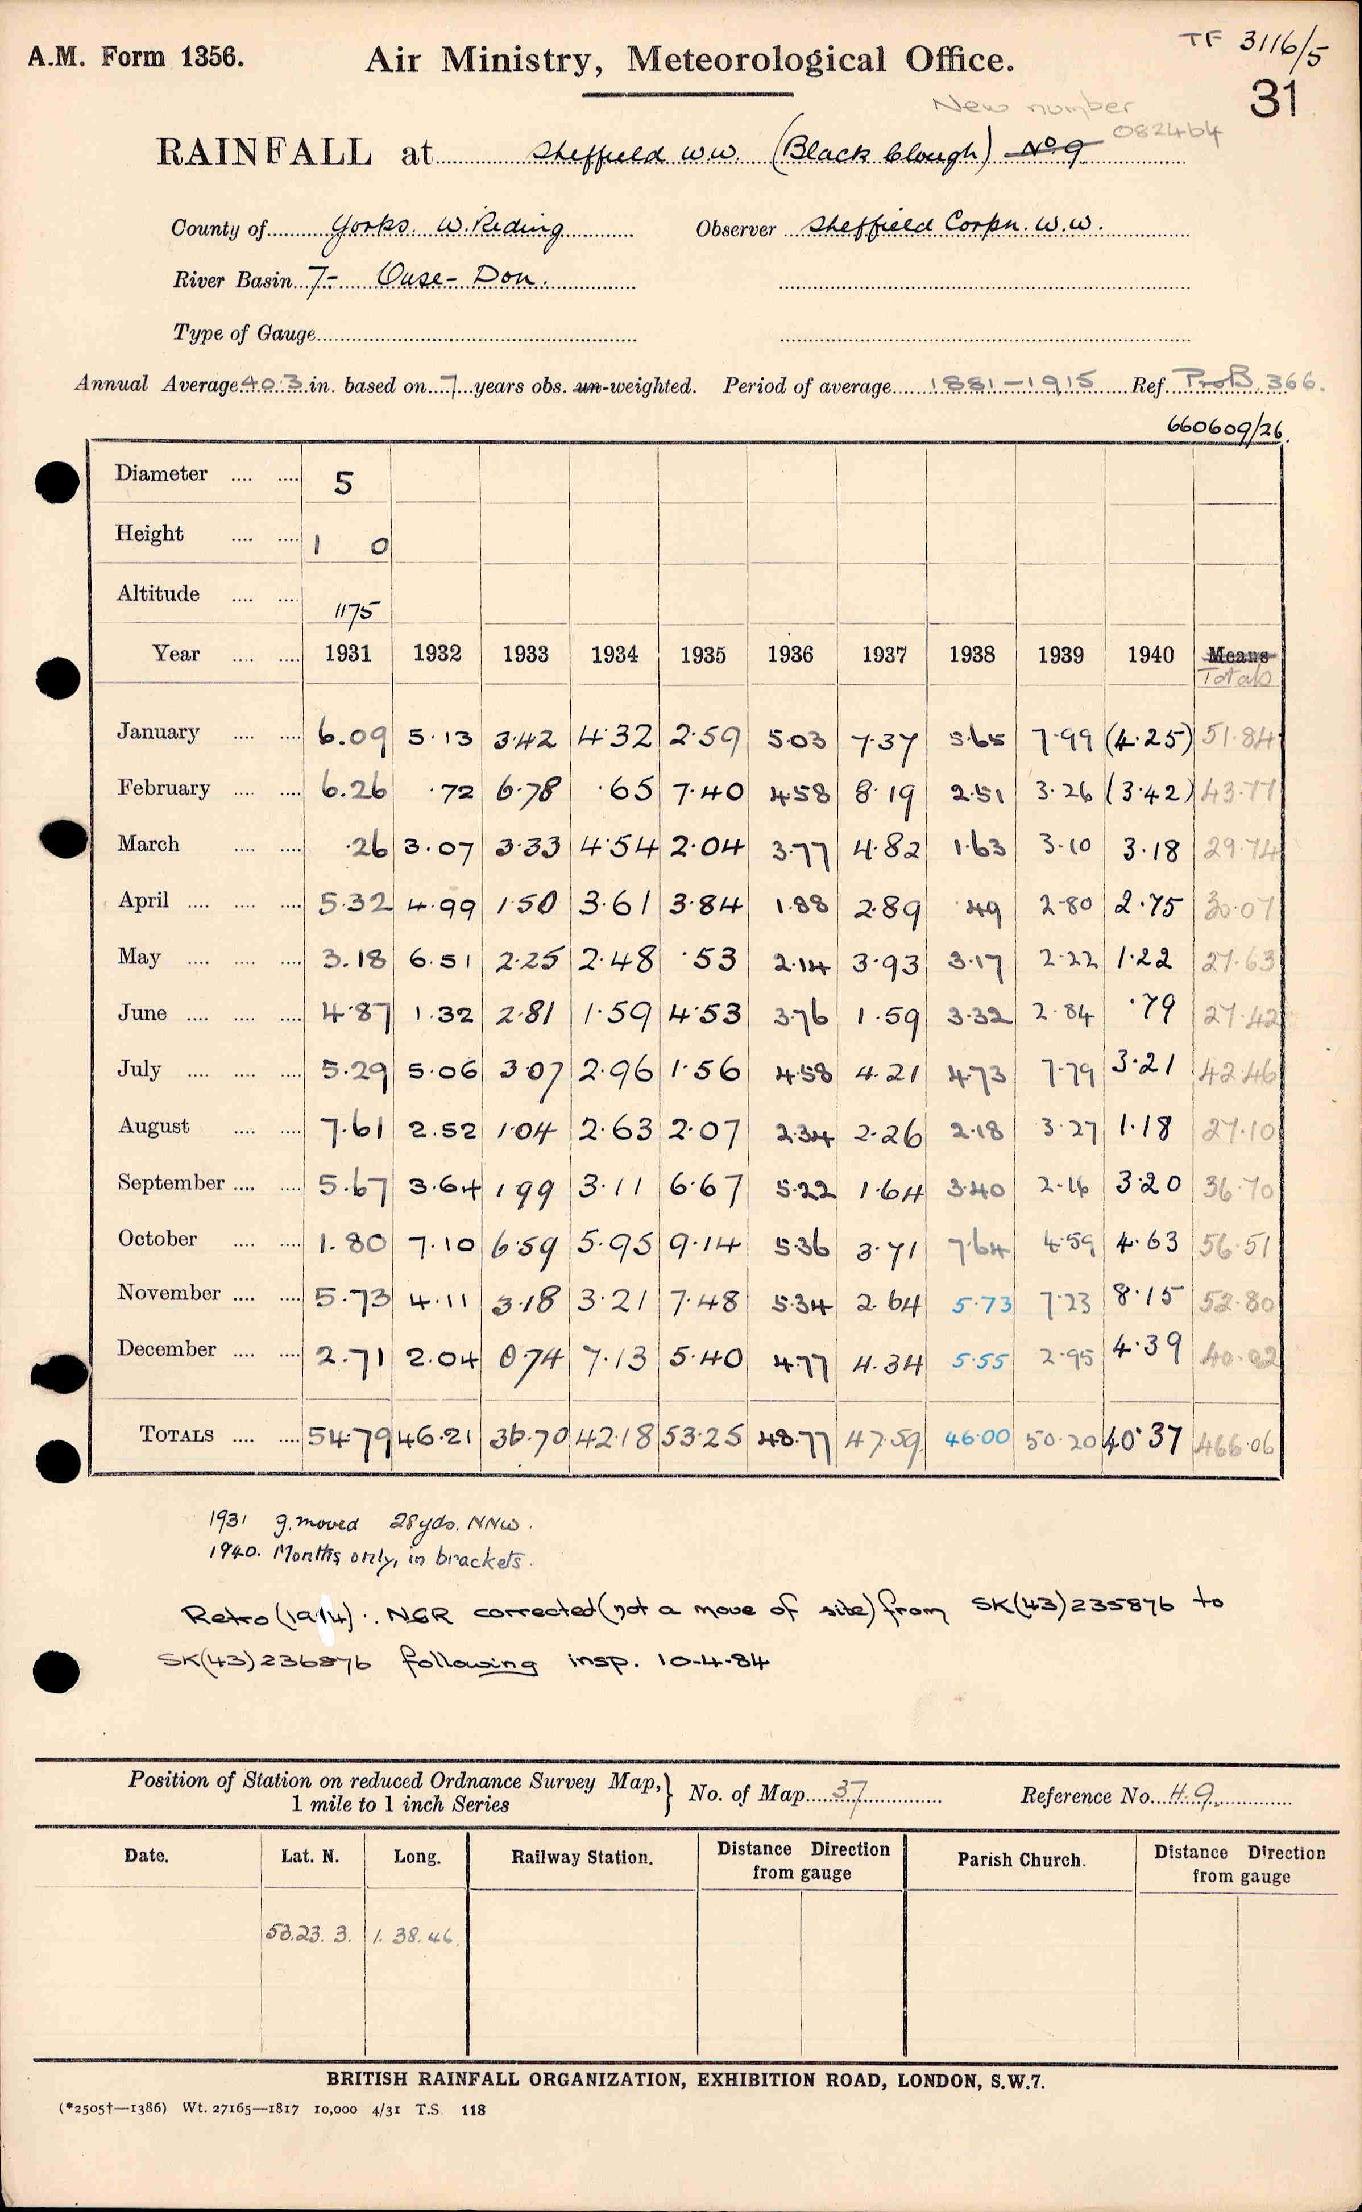 A.M. Form 1356.
Air Ministry, Meteorological Office.
TF 3116/5
31
New number
082464
RAINFALL at Sheffield W.W. (Black Clough) No 9
County of Yorks. W. Riding Observer Sheffield Corpn. W.W.
River Basin 7- Ouse - Don.
Type of Gauge
Annual Average 40.3 in. based on 7 years obs. un-weighted. Period of average 1881-1915 Ref. Pro B 366.
660609/26.
Diameter .... .... 5
Height .... .... 1 0
Altitude .... .... 1175
Year .... .... 1931 1932 1933 1934 1935 1936 1937 1938 1939 1940 Means
Totals
January .... .... 6.09 5.13 3.42 4.32 2.59 5.03 7.37 5.65 7.99 (4.25) 51.84
February .... .... 6.26 .72 6.78 .65 7.40 4.58 8.19 2.51 3.26 (3.42) 43.77
March .... .... .26 3.07 3.33 4.54 2.04 3.77 4.82 1.63 3.10 3.18 29.74
April .... .... .... 5.32 4.99 1.50 3.61 3.84 1.88 2.89 .49 2.80 2.75 30.07
May .... .... .... 3.18 6.51 2.25 2.48 .53 2.14 3.93 3.17 2.22 1.22 27.63
June .... .... .... 4.87 1.32 2.81 1.59 4.53 3.76 1.59 3.32 2.84 .79 27.42
July .... .... .... 5.29 5.06 3.07 2.96 1.56 4.58 4.21 4.73 7.79 3.21 42.46
August .... .... 7.61 2.52 1.04 2.63 2.07 2.34 2.26 2.18 3.27 1.18 27.10
September .... .... 5.67 3.64 1.99 3.11 6.67 5.22 1.64 3.40 2.16 3.20 36.70
October .... .... 1.80 7.10 6.59 5.95 9.14 5.36 3.71 7.64 4.59 4.63 56.51
November .... .... 5.73 4.11 3.18 3.21 7.48 5.34 2.64 5.73 7.23 8.15 52.80
December .... .... 2.71 2.04 0.74 7.13 5.40 4.77 4.34 5.55 2.95 4.39 40.02
TOTALS .... .... 54.79 46.21 36.70 42.18 53.25 48.77 47.59 46.00 50.20 40.37 466.06
1931 g. moved 28 yds. NNW.
1940. Months only, in brackets.
Retro (1914). NGR corrected (not a move of site) from SK(43)235876 to
SK(43)236876 following insp. 10.4.84
Position of Station on reduced Ordnance Survey Map, 1 mile to 1 inch Series } No. of Map 37 Reference No. 49
Date. Lat. N. Long. Railway Station. Distance Direction from gauge Parish Church. Distance Direction from gauge
53.23.3. 1.38.46.
BRITISH RAINFALL ORGANIZATION, EXHIBITION ROAD, LONDON, S.W.7.
(*2505†—1386) Wt. 27165—1817 10,000 4/31 T.S. 118